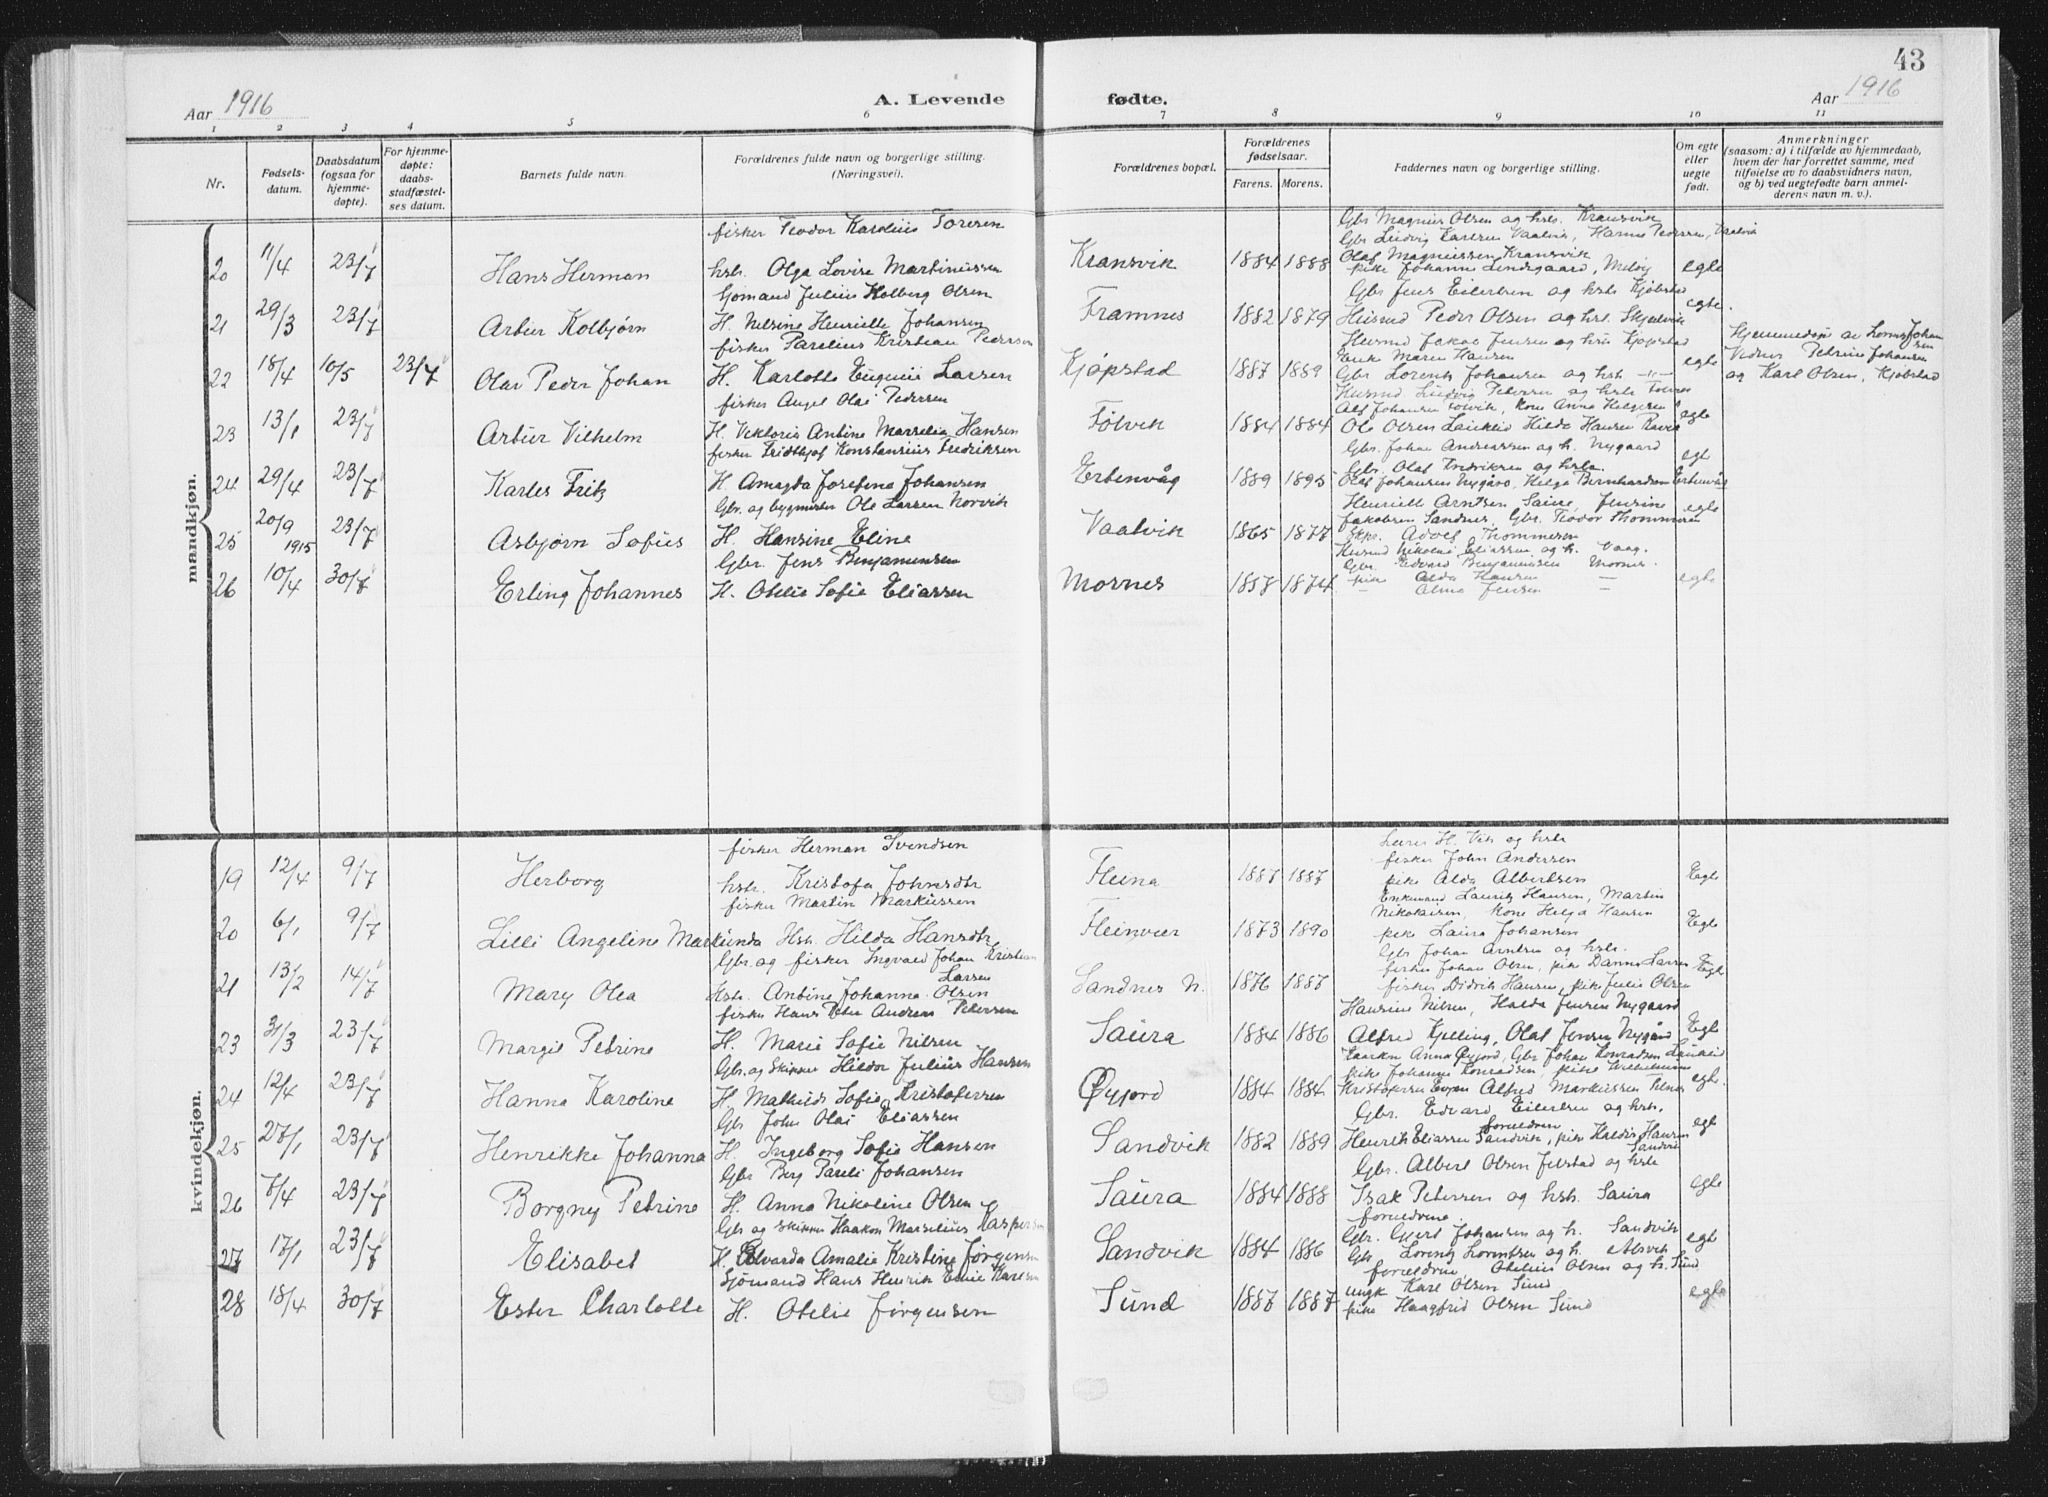 43
Aar 1916
A. Levende
fødte.
Aar 1916
1 2 3 4 5 6 7 8 9 10 11
Nr.
Fødsels-
datum.
Daabsdatum
(ogsaa for
hjemme-
døpte).
For hjemme-
døpte:
daabs-
stadfæstel-
ses datum.
Barnets fulde navn.
Forældrenes fulde navn og borgerlige stilling.
(Næringsvei).
Forældrenes bopæl.
Forældrenes
fødselsaar.
Farens. Morens.
Faddernes navn og borgerlige stilling.
Om egte
eller
uegte
født.
Anmerkninger
(saasom: a) i tilfælde av hjemmedaab,
hvem der har forrettet samme, med
tilføielse av to daabsvidners navn,
og b) ved uegtefødte barn anmel-
derens navn m. v.).
mandkjøn.
fisker Teodor Karelius Toresen
Gbr Magnus Olsen og hstr. Kransvik
Gbr Ludvig Karlsen Vaalvik, Hanna Pedersen, Vaalvik
20 11/4 23/7 Hans Herman hstr. Olga Lovise Martinussen Kransvik 1884 1888 Olaf Magnussen Kransvik egte
pike Johanne Lindsgaard, Meløy
Sjømand Julius Holberg Olsen
Gbr Jens Eilertsen og hstr Kjøbstad
21 29/3 23/7 Artur Kolbjørn H. Nelsine Henriette Johansen Framnes 1882 1879 Husmd Peder Olsen og hst. Skjelvik egte.
fisker Parelius Kristian Pedersen
Husmd Jakob Jensen og hstr Kjøpstad
Enk Maren Hansen
22 18/4 10/5 23/7 Olav Peder Johan H. Karlotte Eugenie Larsen Kjøpstad 1887 1889 Gbr Lorentz Johansen og hst -"- egte
Vidner Petrine Johansen
og Karl Olsen, Kjøbstad
fisker Angel Olai Pedersen
Husmd Ludvig Petersen og hstr
23 13/1 23/7 Artur Vilhelm H. Viktoria Antine Marselia Hansen Følvik 1884 1884 Ole Olsen Hilda Hansen egte
fisker Fridthjof Konstansius Fredriksen
Gbr. Johan Andreassen og h. Nygaard
Gbr. Olaf Fredriksen og hstr.
24 29/4 23/7 Karles Fritz H Amagda Josefine Johansen Ertenvåg 1889 1895 Olaf Johansen Nygård, Helga Bernhardsen Ertenvåg egt
Gbr. og bygmester Ole Larsen Norvik
Henriette Arntsen Saura, Jensine
Jakobsen Sandnes, Gbr. Teodor Thommesen
25 20/9 1915 23/7 Asbjørn Sofus H. Hansine Eline Vaalvik 1865 1877 Adolf Thommesen egte
Gbr. Jens Benjaminsen
Husmd Nikolai Eliassen og h. Vaag.
Gbr. Edvard Benjaminsen Mornes.
26 10/4 30/7 Erling Johannes H. Otelie Sofie Eliassen Mornes 1857 1874 pike Alda Hansen — egte
— Alma Jensen —
kvindekjøn.
fisker Herman Svendsen
H. Vik og hstr
fisker John Andersen
19 12/4 9/7 Herborg hstr. Kristofa Johnsdtr Fleina 1887 1887 pike Alda Albertsen Egte
fisker Martin Markussen
Enkemand Lauritz Hansen, Martin
Nikolaisen, Kone Helga Hansen
20 6/1 9/7 Lilli Angeline Markunda Hst. Hilda Hansdtr Fleinvær 1873 1890 pike Laura Johansen Egte
Gbr. og fisker Ingvald Johan Kristian
Larsen
Gbr Johan Arntsen og hstr.
fisker Johan Olsen, pike Danna Larsen
21 13/2 14/7 Mary Olea Hstr. Antine Johanna Olsen Sandnes N. 1876 1887 fisker Didrik Hansen, pike Julie Olsen Egte
fisker Hans Peter Andreas Petersen
Hansine Nilsen, Halda Jensen Nygaard
23 31/3 23/7 Margit Petrine H. Marie Sofie Nilsen Saura 1884 1886 Alfred Kjelling, Olaf Jensen Nygård Egte
Gbr. og Skipper Hildor Julius Hansen
Anna Øyjord, Gbr Johan Konradsen
pike Johanne Konradsen, pike
24 12/4 23/7 Hanna Karoline H. Mathilde Sofie Kristofersen Øyjord 1884 1884 Kristofersen Alfred Markussen egte.
Gbr John Olai Eliassen
Gbr. Edvard Eilertsen og hstr.
forældrene
25 27/1 23/7 Henrikke Johanna H. Ingeborg Sofie Hansen Sandvik 1882 1889 Henrik Eliassen Sandvik, pike Haldis Hansen Sandvik egte
Gbr Berg Pareli Johansen
Gbr. Albert Olsen Jelstad og hstr
26 7/4 23/7 Borgny Petrine H. Anna Nikoline Olsen Saura 1884 1888 Isak Petersen og hst. Saura egte
forældrene.
Gbr og Skipper Haakon Marselius Kaspersen
Gbr. Gjert Johansen og h. Sandvik
27 17/1 23/7 Elisabet H. Edvarda Amalie Kristine Jørgensen Sandvik 1884 1886 Gbr Lorentz Lorentsen og h. Alsvik egte
Sjømand Hans Henrik Karlsen
forældrene Otelius Olsen og h. Sund
28 18/4 30/7 Ester Charlotte H. Otelie Jørgensen Sund 1887 1887 ungk Karl Olsen Sund egte
pike Haagfrid Olsen Sund